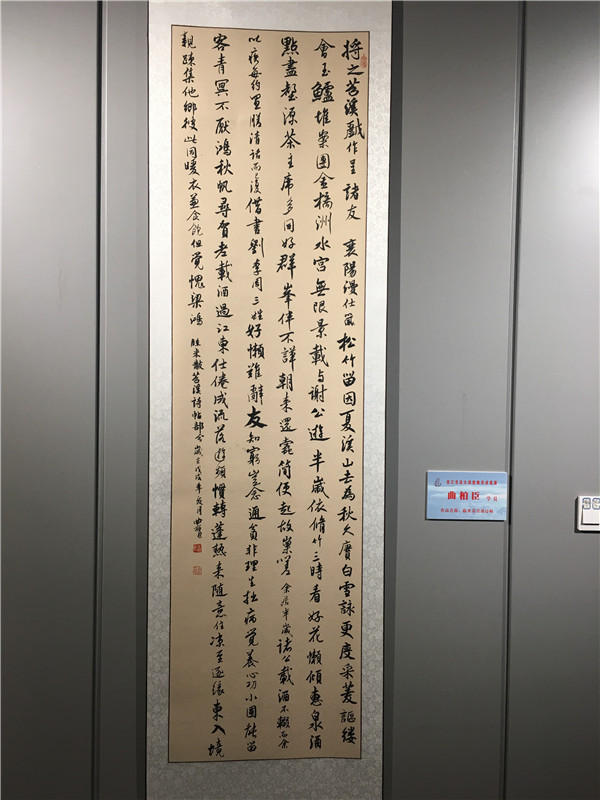 將之苕溪戲作呈諸友 襄陽漫仕黻 松竹留因夏溪山去為秋久賡白雪詠更度采菱謳縷
會玉鱸堆案團金橘洲水宮無限景載与謝公遊半歲依脩竹三時看好花懶傾惠泉酒
點盡壑源茶主席多同好群峯伴不譁朝來還蠹簡便起故巢嗟 余居半歲諸公載酒不輟而余
以疾每約置膳清話而復借書劉李周三姓 好懶難辭友知窮豈念通貧非理生拙病覺養心功小圃能留
客青冥不厭鴻秋帆尋賀老載酒過江東仕倦成流落遊頻慣轉蓬熱來隨意住涼至逐緣東入境
親疎集他鄉彼此同暖衣兼食飽但覺愧梁鴻 臨米黻苕溪詩帖部分歲在戊戌年月
曲柏臣 学员
作品名称:临米芾苕溪诗帖